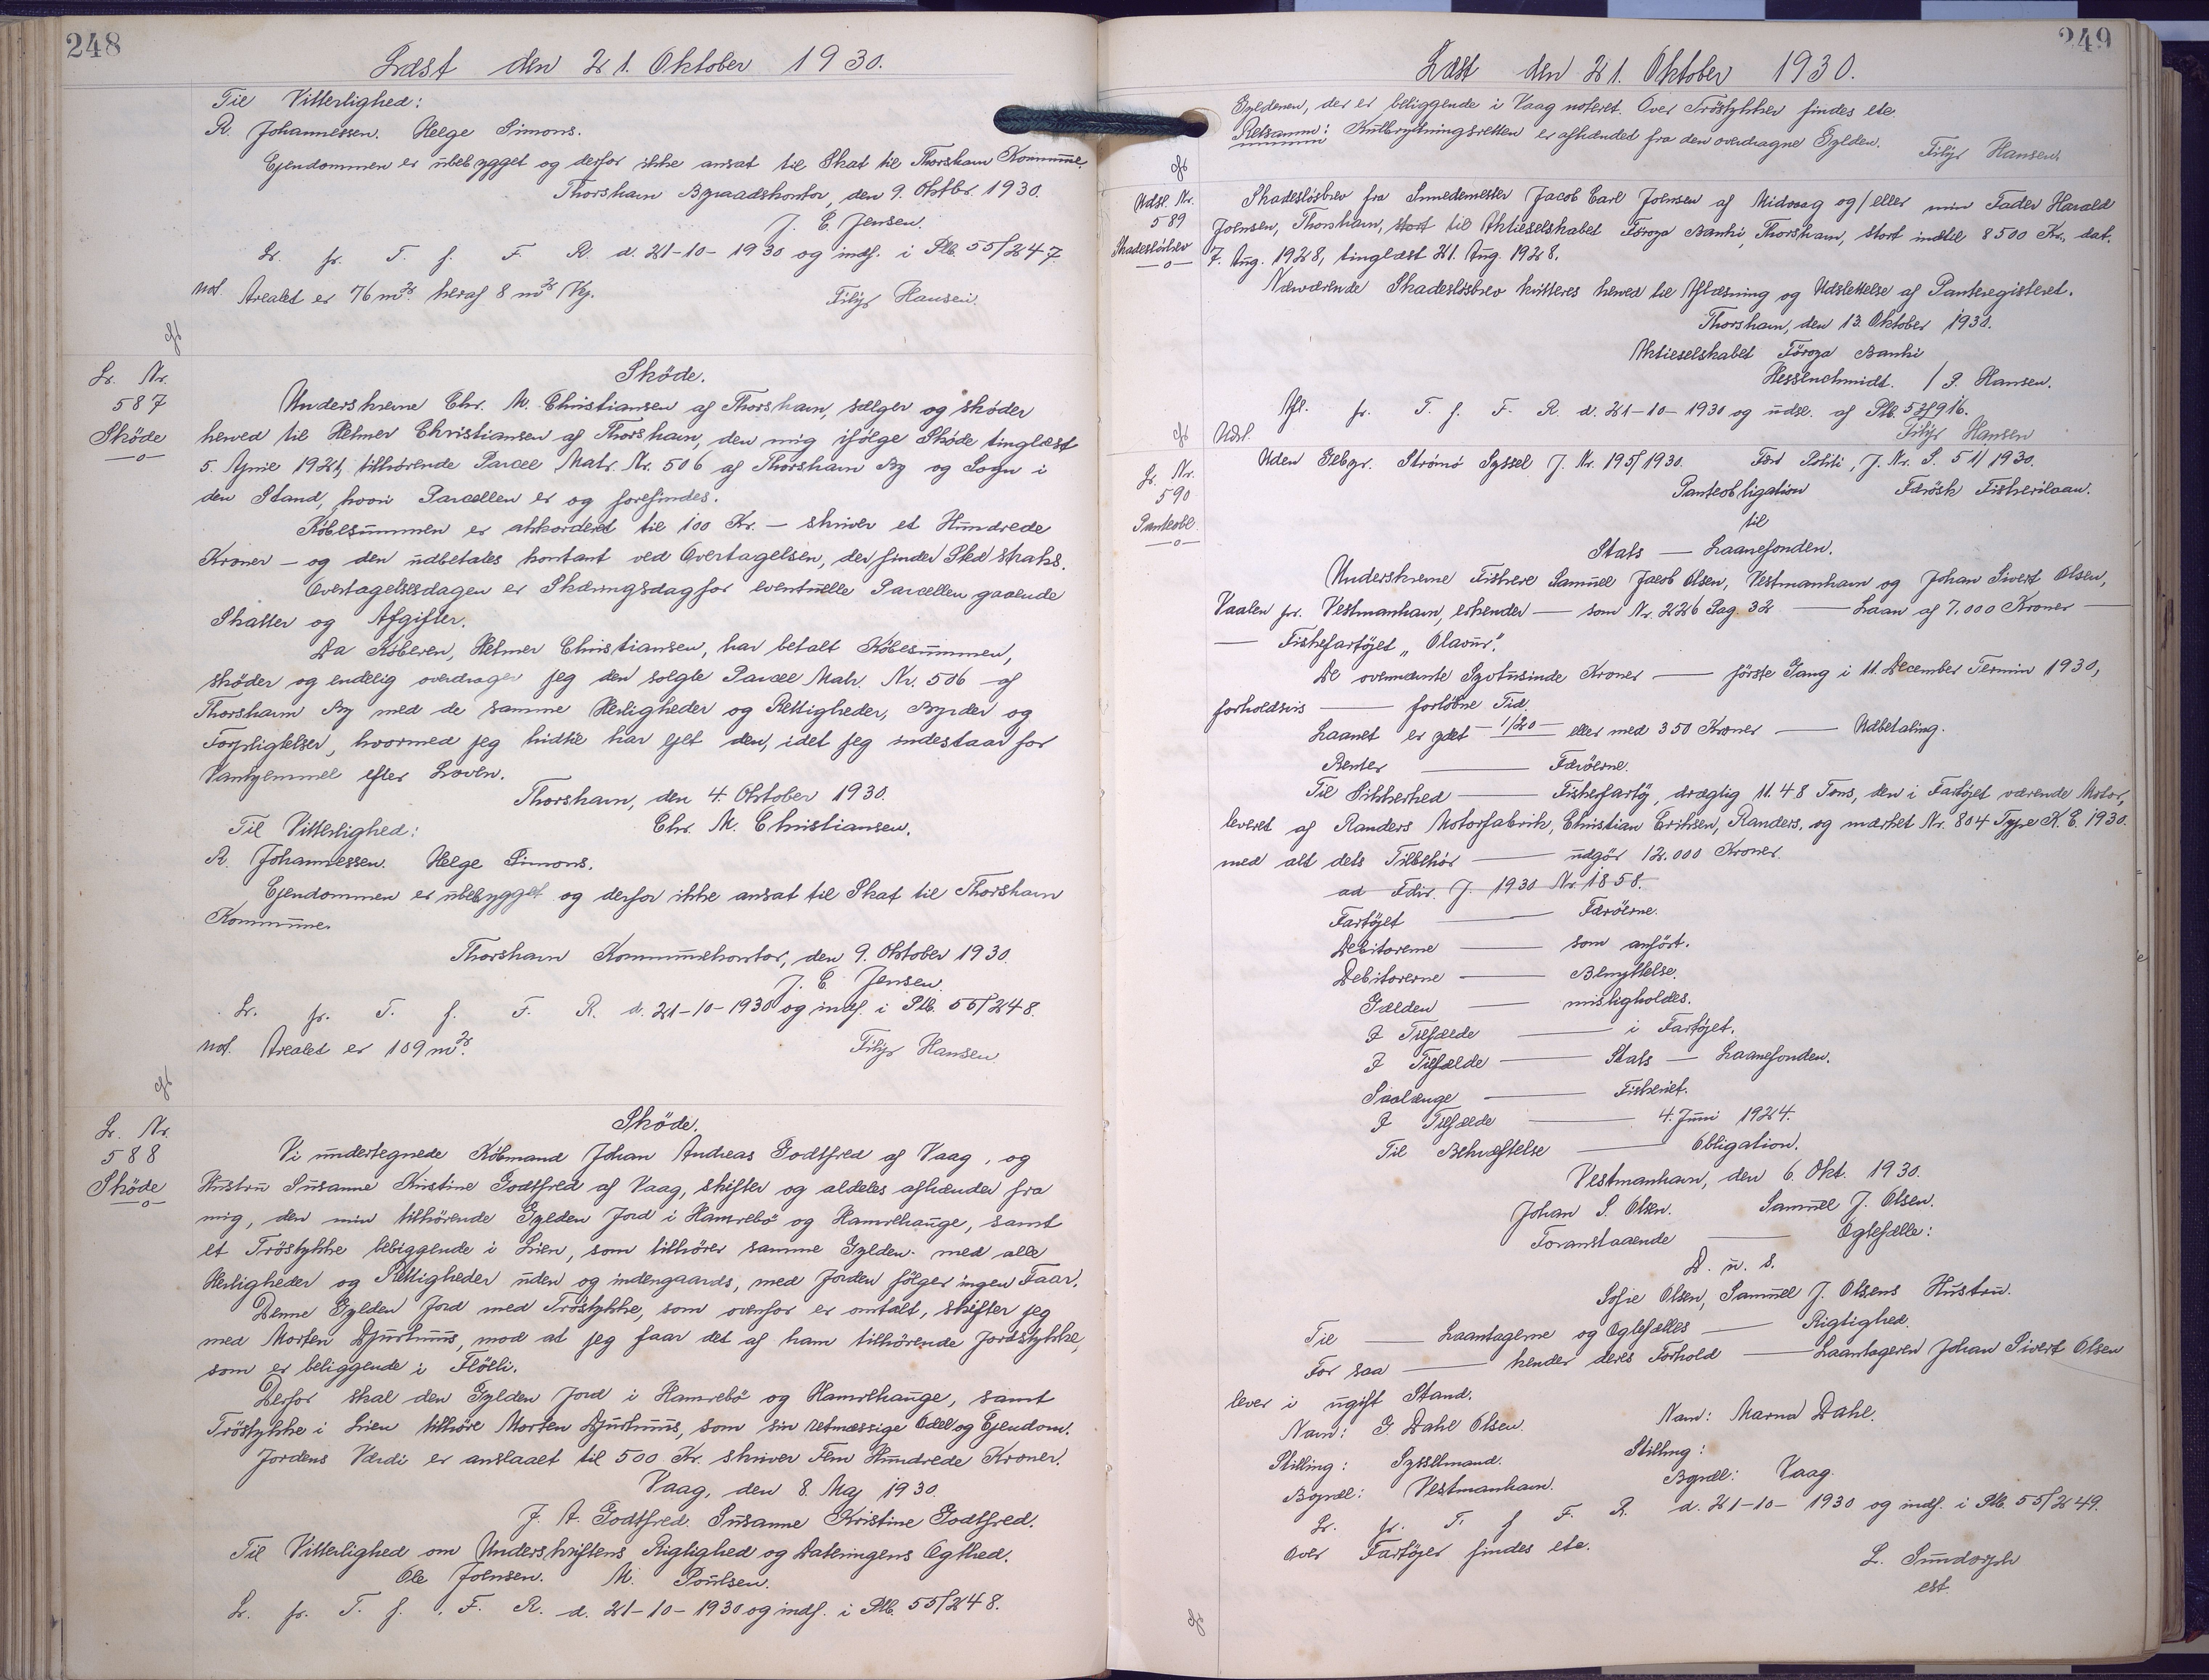 248
Læst den 21. Oktober 1930.
Til Vitterlighed:
R. Johannessen. Helge Simons.
Ejendommen er ubebygget og derfor ikke ansat til Skat til Thorshavn Kommune.
Thorshavn Byraadskontor, den 9. Oktbr. 1930.
J. C. Jensen.
Lr. fr. T. f. F. R. d. 21-10-1930 og indf. i Plb. 55/247
Not. Arealet er 76 m². heraf 8 m² Vej.
Filip Hansen.
Lr. Nr.
587
Sköde
Sköde.
Underskrevne Chr. M. Christiansen af Thorshavn, sælger og skøder
herved til Helmer Christiansen af Thorshavn, den mig ifølge Skøde tinglæst
5. April 1921, tilhørende Parcel Matr. Nr. 506 af Thorshavn By og Sogn i
den Stand, hvori Parcellen er og forefindes.
Købesummen er akkorderet til 100 Kr. — skriver et Hundrede
Kroner — og den udbetales kontant ved Overtagelsen, der finder Sted straks.
Overtagelsesdagen er Skæringsdag for eventuelle Parcellen gaaende
Skatter og Afgifter.
Da Køberen, Helmer Christiansen, har betalt Købesummen,
skøder og endelig overdrager jeg den solgte Parcel Matr. Nr. 506 af
Thorshavn By med de samme Herligheder og Rettigheder, Byrder og
Forpligtelser, hvormed jeg hidtil har ejet den, idet jeg indestaar for
Vanhjemmel efter Loven.
Thorshavn, den 4. Oktober 1930.
Til Vitterlighed: Chr. M. Christiansen.
R. Johannessen. Helge Simons.
Ejendommen er ubebygget og derfor ikke ansat til Skat til Thorshavn
Kommune.
Thorshavn Kommunekontor, den 9. Oktober 1930.
J. C. Jensen.
Lr. fr. T. f. F. R. d. 21-10-1930 og indf. i Plb. 55/248.
Not. Arealet er 109 m².
Filip Hansen
Lr. Nr.
588
Sköde
Sköde.
Vi undertegnede Købmand Johan Andreas Godtfred af Vaag, og
Hustru Susanne Kristine Godtfred af Vaag, skifter og aldeles afhænder fra
mig, den min tilhørende Gylden Jord i Hamrebö og Hamrehauge, samt
et Tröstykke bebiggende i Lien, som tilhører samme Gylden. med alle
Herligheder og Rettigheder uden og indengaards, med Jorden følger ingen Faar.
Denne Gylden Jord med Tröstykke, som ovenfor er omtalt, skifter jeg
med Morten Djurhuus, mod at jeg faar det af ham tilhørende Jordstykke,
som er beliggende i Flöthi.
Derfor skal den Gylden Jord i Hamrebö og Hamrehauge, samt
Tröstykke i Lien tilhöre Morten Djurhuus, som sin retmæssige Odel og Ejendom.
Jordens Værdi er anslaaet til 500 Kr. skriver Fem Hundrede Kroner.
Vaag, den 8. Maj 1930.
J. A. Godtfred. Susanne Kristine Godtfred.
Til Vitterlighed om Underskriftens Rigtighed og Dateringens Ægthed.
Ole Joensen. M. Poulsen.
Lr. fr. T. f. F. R. d. 21-10-1930 og indf. i Plb. 55/248.
249
Læst den 21. Oktober 1930.
Gyldenen, der er beliggende i Vaag noteret. Over Tröstykker findes ete.
Retsanm: Kulbrytningsretten er afhændet fra den overdragne Gylden.
Filip Hansen.
Udsl. Nr.
589
Skadesløsbrev
Skadesløsbrev fra Snedkermester Jacob Carl Joensen af Midvaag og/eller min Fader Harald
Joensen, Thorshavn, stort til Aktieselskabet Föroya Banki, Thorshavn, stort indtil 8500 Kr., dat.
7. Aug. 1928, tinglæst 21. Aug. 1928.
Nærværende Skadesløsbrev kvitteres herved til Aflæsning og Udslettelse af Panteregisteret.
Thorshavn, den 13. Oktober 1930.
Aktieselskabet Föroya Banki
Hessenschmidt. / S. Hansen.
Afl. fr. T. f. F. R. d. 21-10-1930 og udsl. af Plb. 53/916.
Udsl.
Filip Hansen
Lr. Nr.
590
Panteobl.
Uden Gebyr. Strömö Syssel J. Nr. 195/1930. Fær Politi, J. Nr. S. 51/1930.
Panteobligation Færösk Fiskerilaan.
til
Stats — Laanefonden.
Underskrevne Fiskere Samuel Jacob Olsen, Vestmanhavn og Johan Sivert Olsen,
Vaalen pr. Vestmanhavn, erkender — som Nr. 226 Pag. 32 — Laan af 7.000 Kroner —
— Fiskefartöjet „Olavur“.
De ovennævnte Syvtusinde Kroner — første Gang i 11. December Termin 1930,
forholdsvis — forløbne Tid.
Laanet er ydet — 1/20 — eller med 350 Kroner — Udbetaling.
Renter — Færöerne.
Til Sikkerhed — Fiskefartöj, drægtig 11.48 Tons, den i Fartöjet værende Motor,
leveret af Randers Motorfabrik, Christian Eriksen, Randers, og mærket Nr. 804 Type K. E. 1930.
med alt dets Tilbehör — udgör 12.000 Kroner.
ad Fdir. J. 1930 Nr. 1858.
Fartöjet — Færöerne.
Debitorerne — som anført.
Debitorerne — Benyttelse.
Gælden — misligholdes.
I Tilfælde — i Fartöjet.
I Tilfælde — Stats — Laanefonden.
Saalænge — Fiskeriet.
I Tilfælde — 4. Juni 1924.
Til Bekræftelse — Obligation.
Vestmanhavn, den 6. Okt. 1930.
Johan S. Olsen. Samuel J. Olsen.
Foranstaaende — Ægtefælle:
D. u. s.
Sofie Olsen, Samuel J. Olsens Hustru.
Til — Laantagerne og Ægtefælles — Rigtighed.
For saa — kender deres Forhold — Laantageren Johan Sivert Olsen
lever i ugift Stand.
Navn: G. Dahl Olsen. Navn: Marna Dahl.
Stilling: Sysselmand. Stilling:
Bopæl: Vestmanhavn. Bopæl: Vaag.
Lr. fr. T. f. F. R. d. 21-10-1930 og indf. i Plb. 55/249.
Over Fartöjer findes ete.
L. Sundorph
cst.